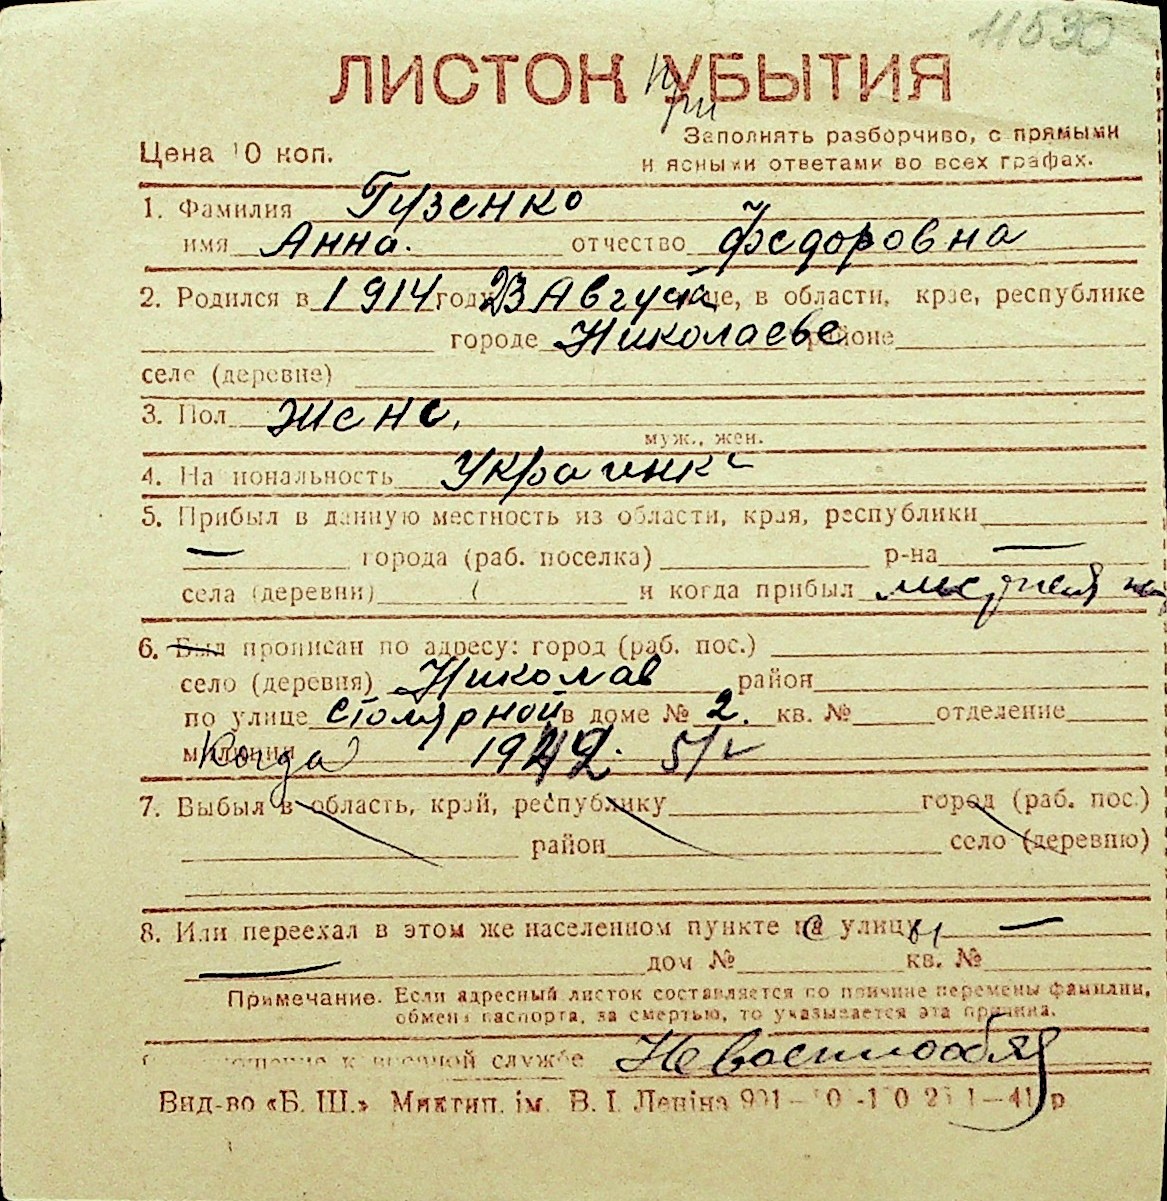 11530
ЛИСТОК УБЫТИЯ
при
Заполнять разборчиво, с прямыми
Цена 10 коп.
и ясными ответами во всех графах.
1. Фамилия Гузенко
имя Анна. отчество Федоровна
2. Родился в 1914 году 23 Августа це, в области, крае, республике
городе Николаеве районе
селе (деревне)
3. Пол женс.
муж., жен.
4. Национальность Украинка
5. Прибыл в данную местность из области, края, республики
— города (раб. поселка) р-на —
села (деревни) и когда прибыл
6. Был прописан по адресу: город (раб. пос.)
село (деревня) Николаев район
по улице Столярной в доме № 2. кв. № отделение
милиции Когда 1942. 5/V
7. Выбыл в область, край, республику город (раб. пос.)
район село (деревню)
8. Или переехал в этом же населенном пункте с улицы —
— дом № кв. №
Примечание. Если адресный листок составляется по причине перемены фамилии,
обмена паспорта, за смертью, то указывается эта причина.
Отношение к военной службе Невоеннообяз
Вид-во «Б. Ш.» Миктип. ім. В. І. Леніна